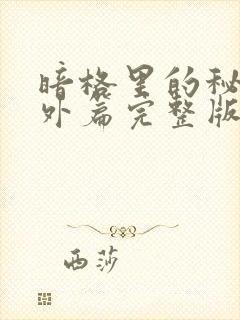 暗格里的秘
外篇完整版
西莎